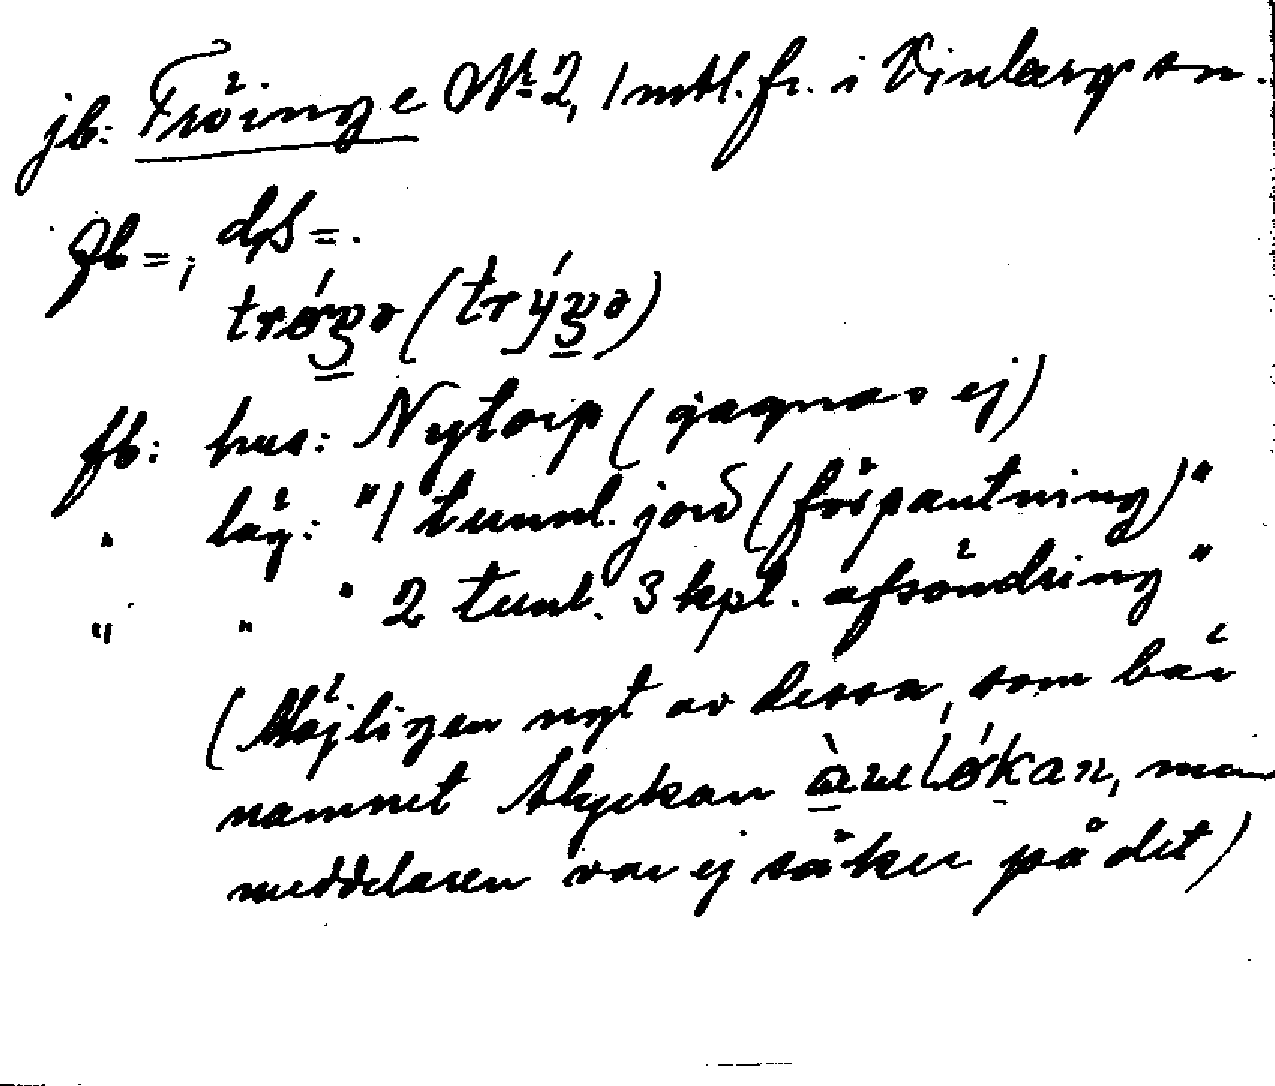 jb: Tröinge No 2, 1 mtl. fr. i Vinberg sn.
gb =; ds =.
trǿʒə (trýʒə)
fb: hus: Nytorp (gagnas ej)
" läg: "1 tunnl. jord (förpantning)"
" " " 2 tunl. 3 kpl. afsöndring"
(Möjligen ngt av dessa, som bär
namnet Ålyckan lǿkan, man
meddelaren var ej säker på det)